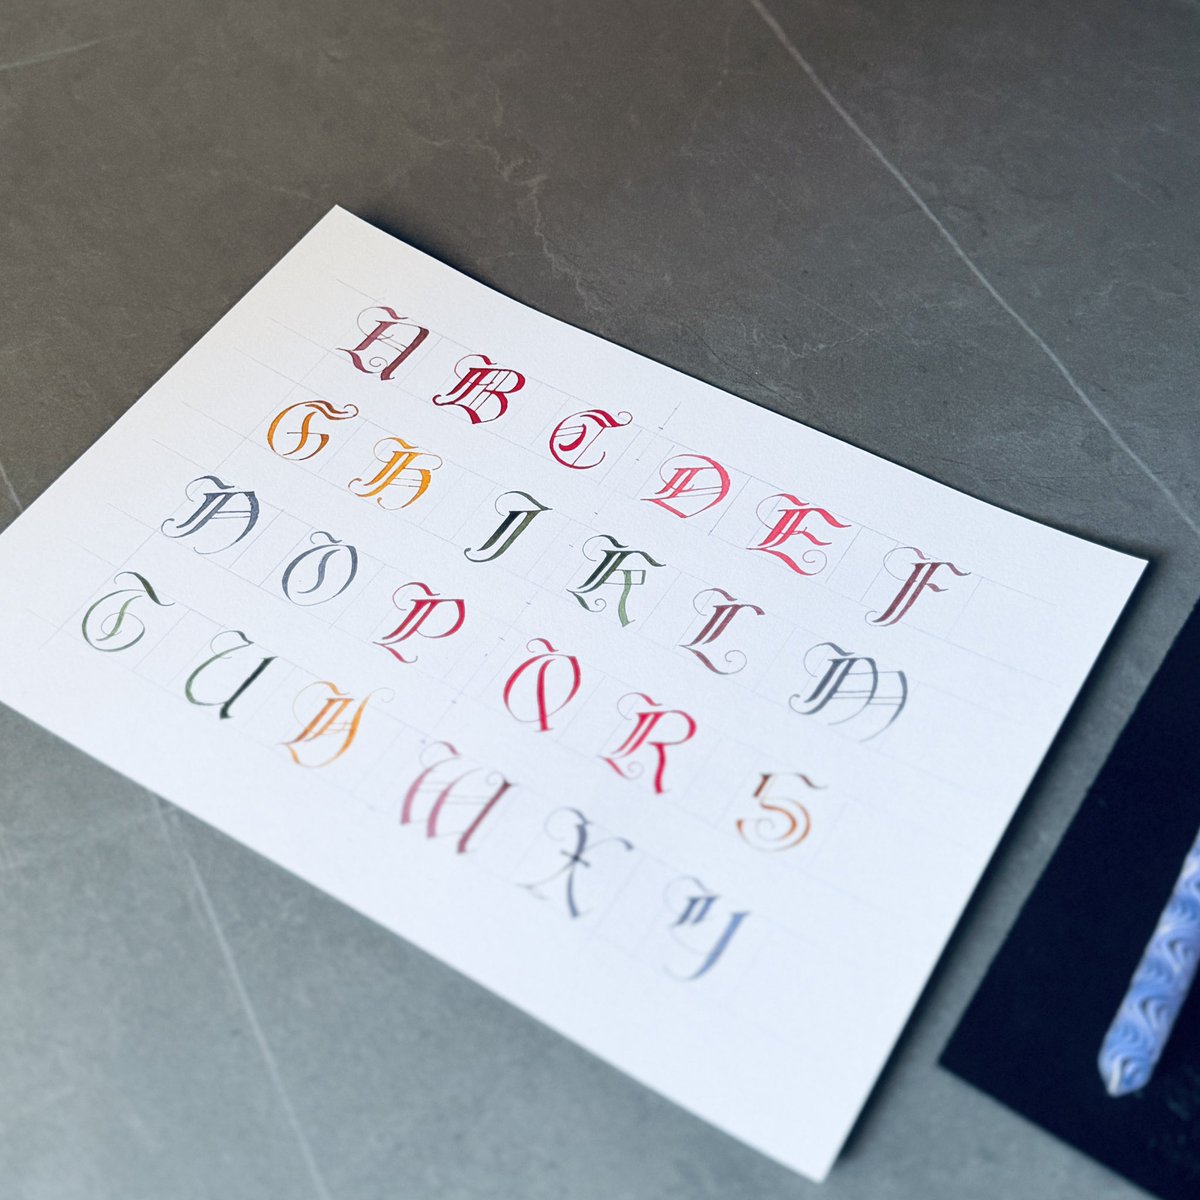 A B C D E F
G H J K L M
N O P Q R S
T U V W X Y